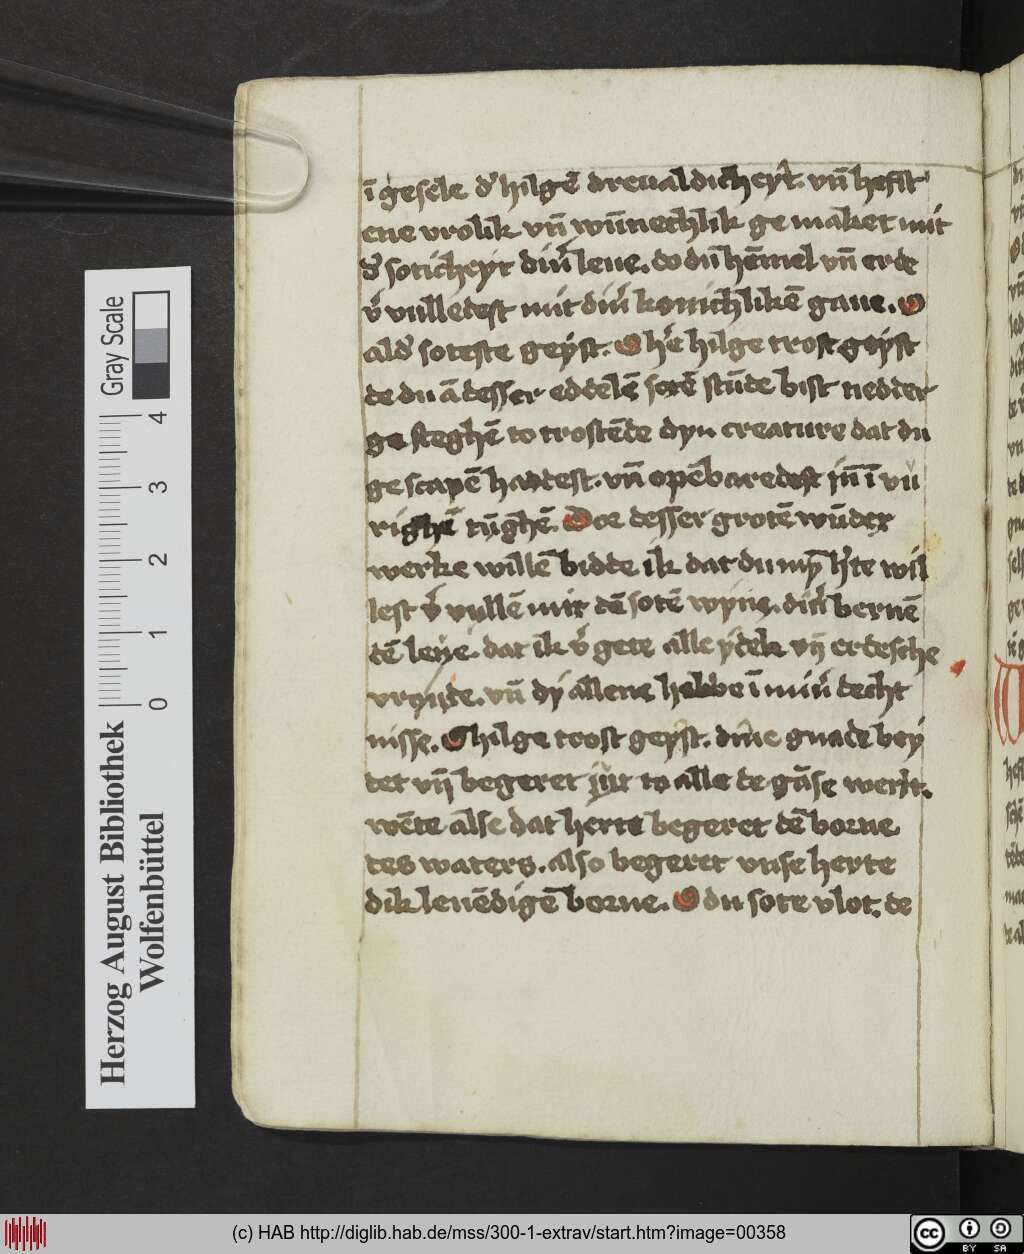 ī gesele d' hilgē dreualdicheyt. vn̄ hefst
ene vrolik vn̄ wūnechlik ge maket mit
d' soticheyt din' leue. do du hēmel vn̄ erde
v' vulledest mit din' konichlikē gaue. O
ald' soteste geyst. O he' hilge trost geyst
de du ā desser eddelē sotē stūde bist nedder
ge steghē to trostēde dyn creature dat du
ge scapē haddest. vn̄ opēbaredest jn̄ ī vu
righē tūghē. Doe desser grotē wūder
werke willē bidde ik dat du myn h'te wil
lest v' vullē mit dē sotē wyne. din' bernē
dē leue. dat ik v' gete alle ydele vn̄ erdesche
vroude. vn̄ dy allene hebbe ī min' decht
nisse. O hilge troost geyst. dine gnade bey
det vn̄ begeret to alle de gāse werlt.
wēte alse dat herte begeret dē borne
des waters. also begeret vnse herte
dik leuēdigē borne. O du sote vlot. de
Herzog August Bibliothek
Wolfenbüttel
0 1 2 3 4
Gray Scale
(c) HAB http://diglib.hab.de/mss/300-1-extrav/start.htm?image=00358
cc BY SA